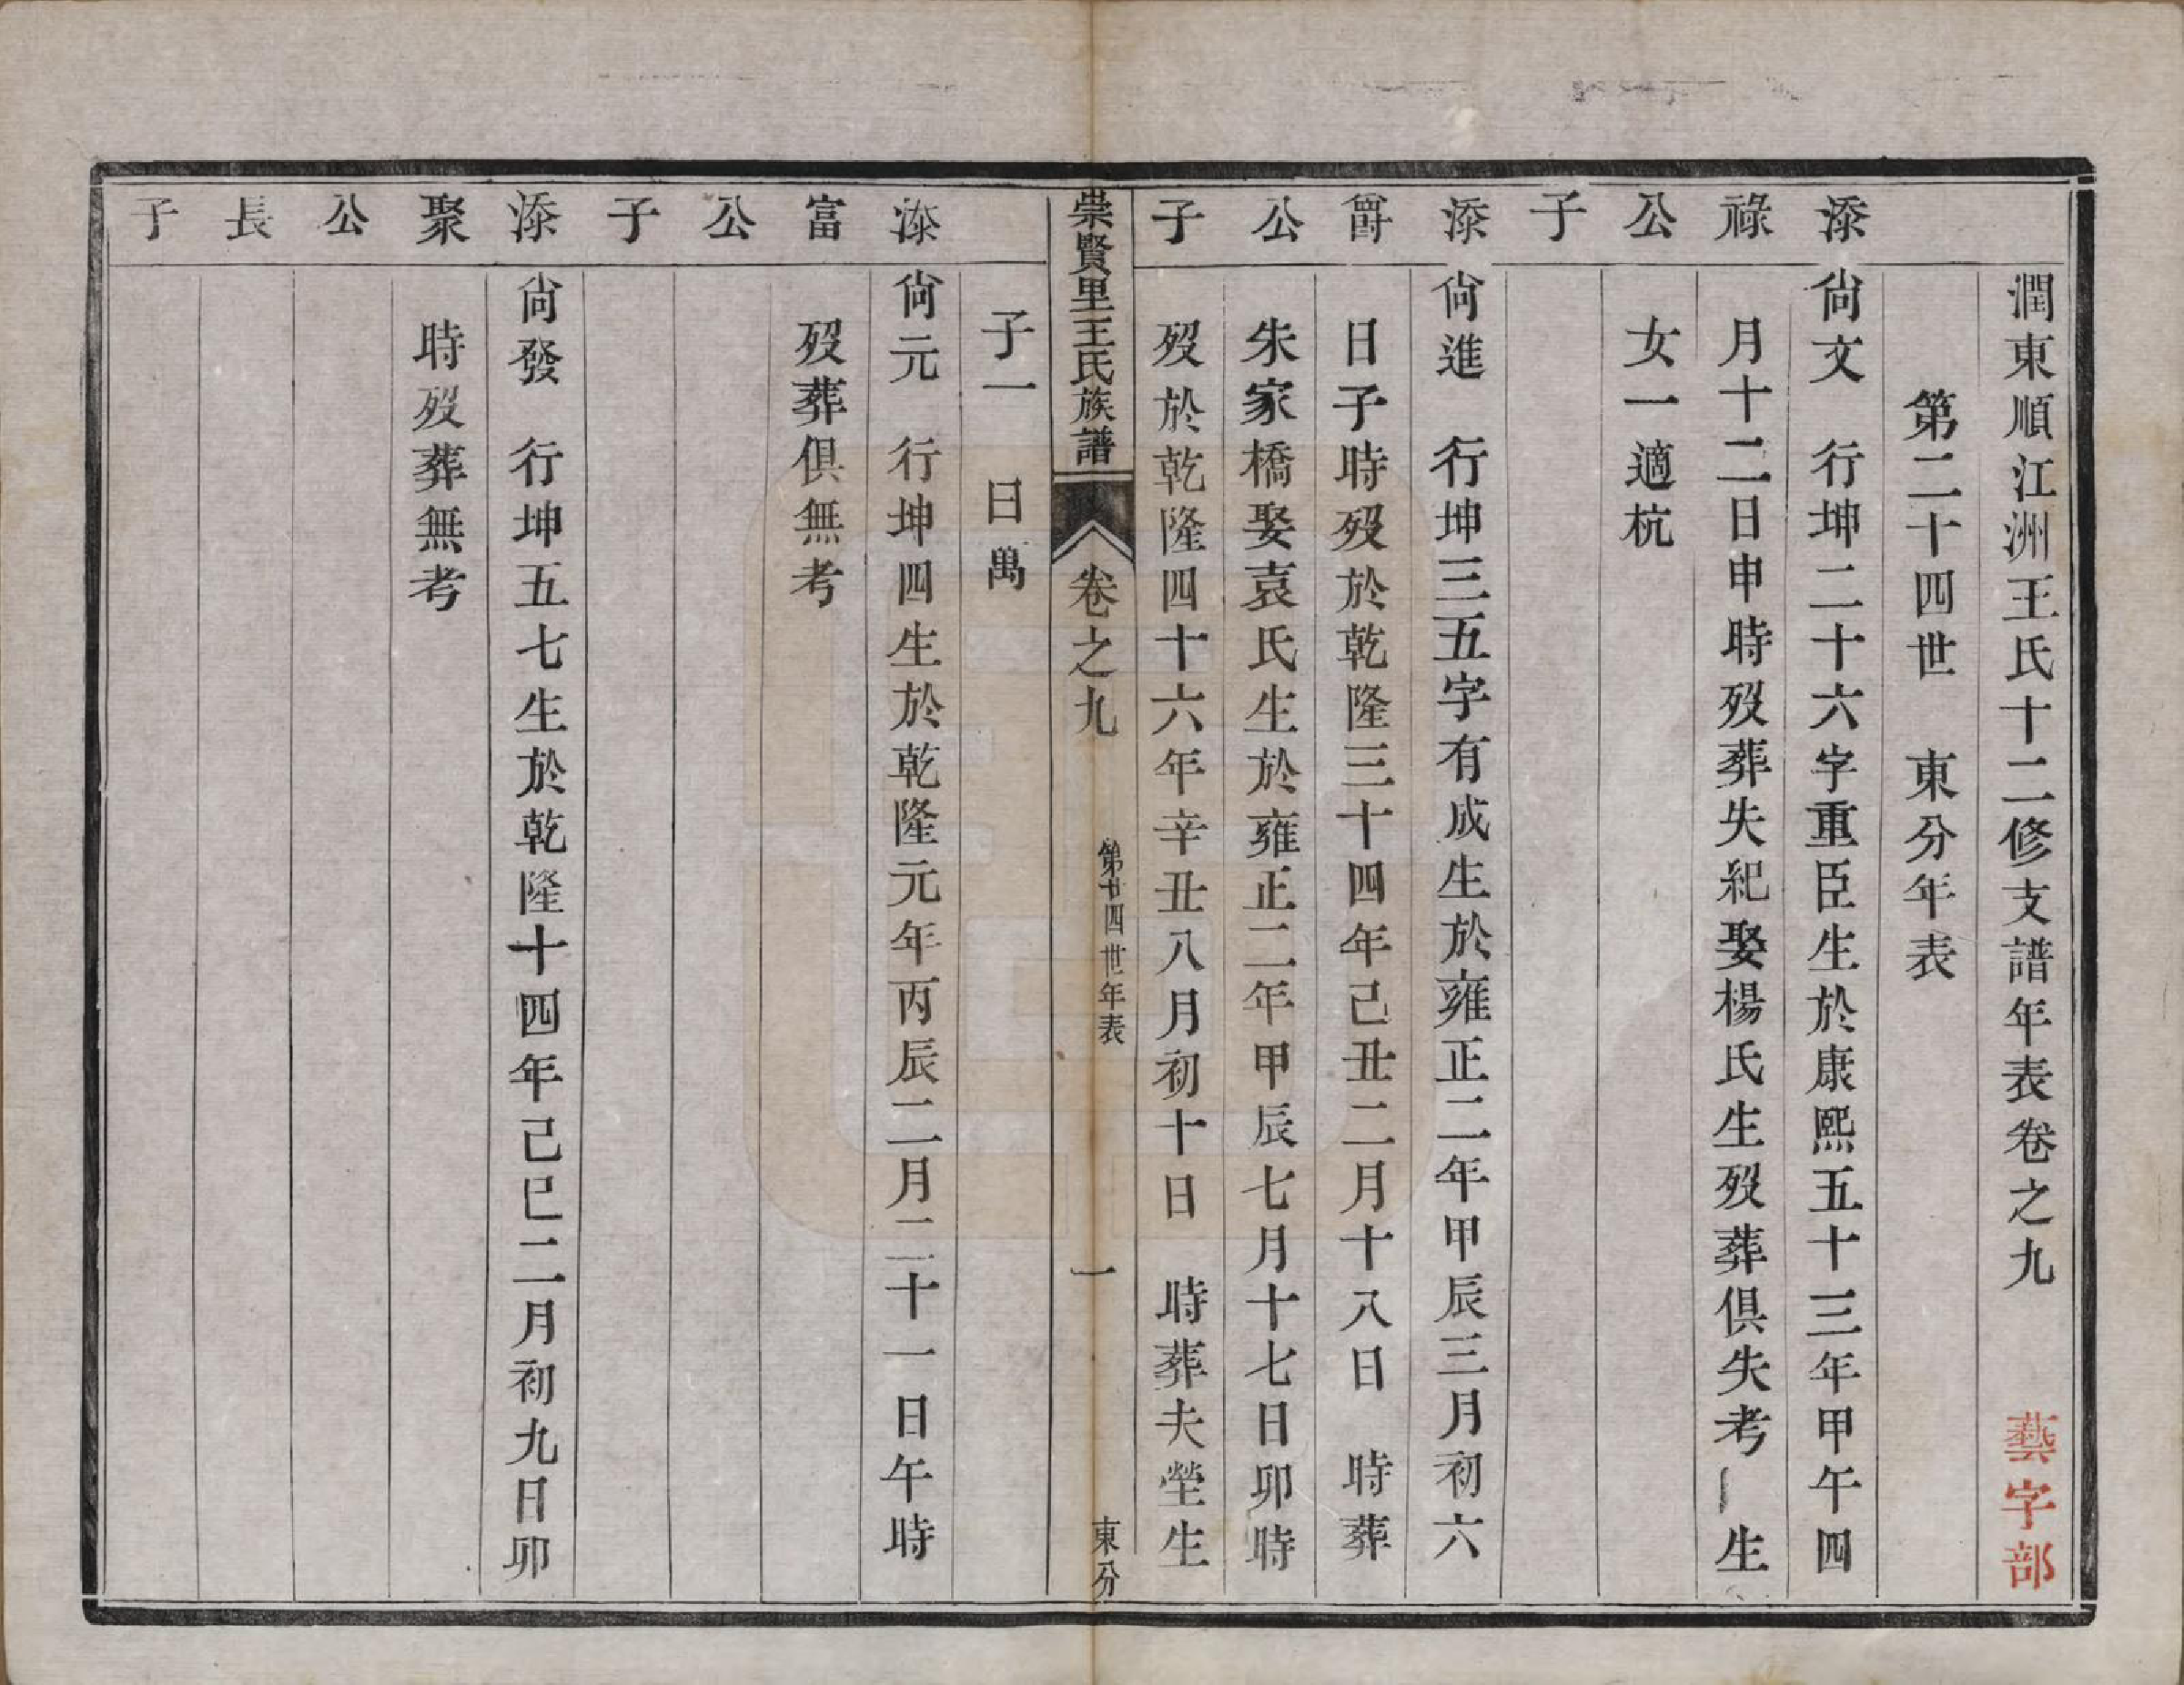 潤東順江洲王氏十二修支譜年表卷之九 藝字部
第二十四世 東分年表
添祿公子
尙文 行坤二十六字重臣生於康熙五十三年甲午四
月十二日申時歿葬失紀娶楊氏生歿葬俱失考 生
女一適杭
添爵公子
尙進 行坤三五字有成生於雍正二年甲辰三月初六
日子時歿於乾隆三十四年己丑二月十八日 時葬
朱家橋娶袁氏生於雍正二年甲辰七月十七日卯時
歿於乾隆四十六年辛丑八月初十日 時葬夫塋生
崇賢里王氏族譜 卷之九 第廿四世年表 一 東分
子一 曰萬
添富公子
尙元 行坤四生於乾隆元年丙辰二月二十一日午時
歿葬俱無考
添聚公長子
尙發 行坤五七生於乾隆十四年己巳二月初九日卯
時歿葬無考